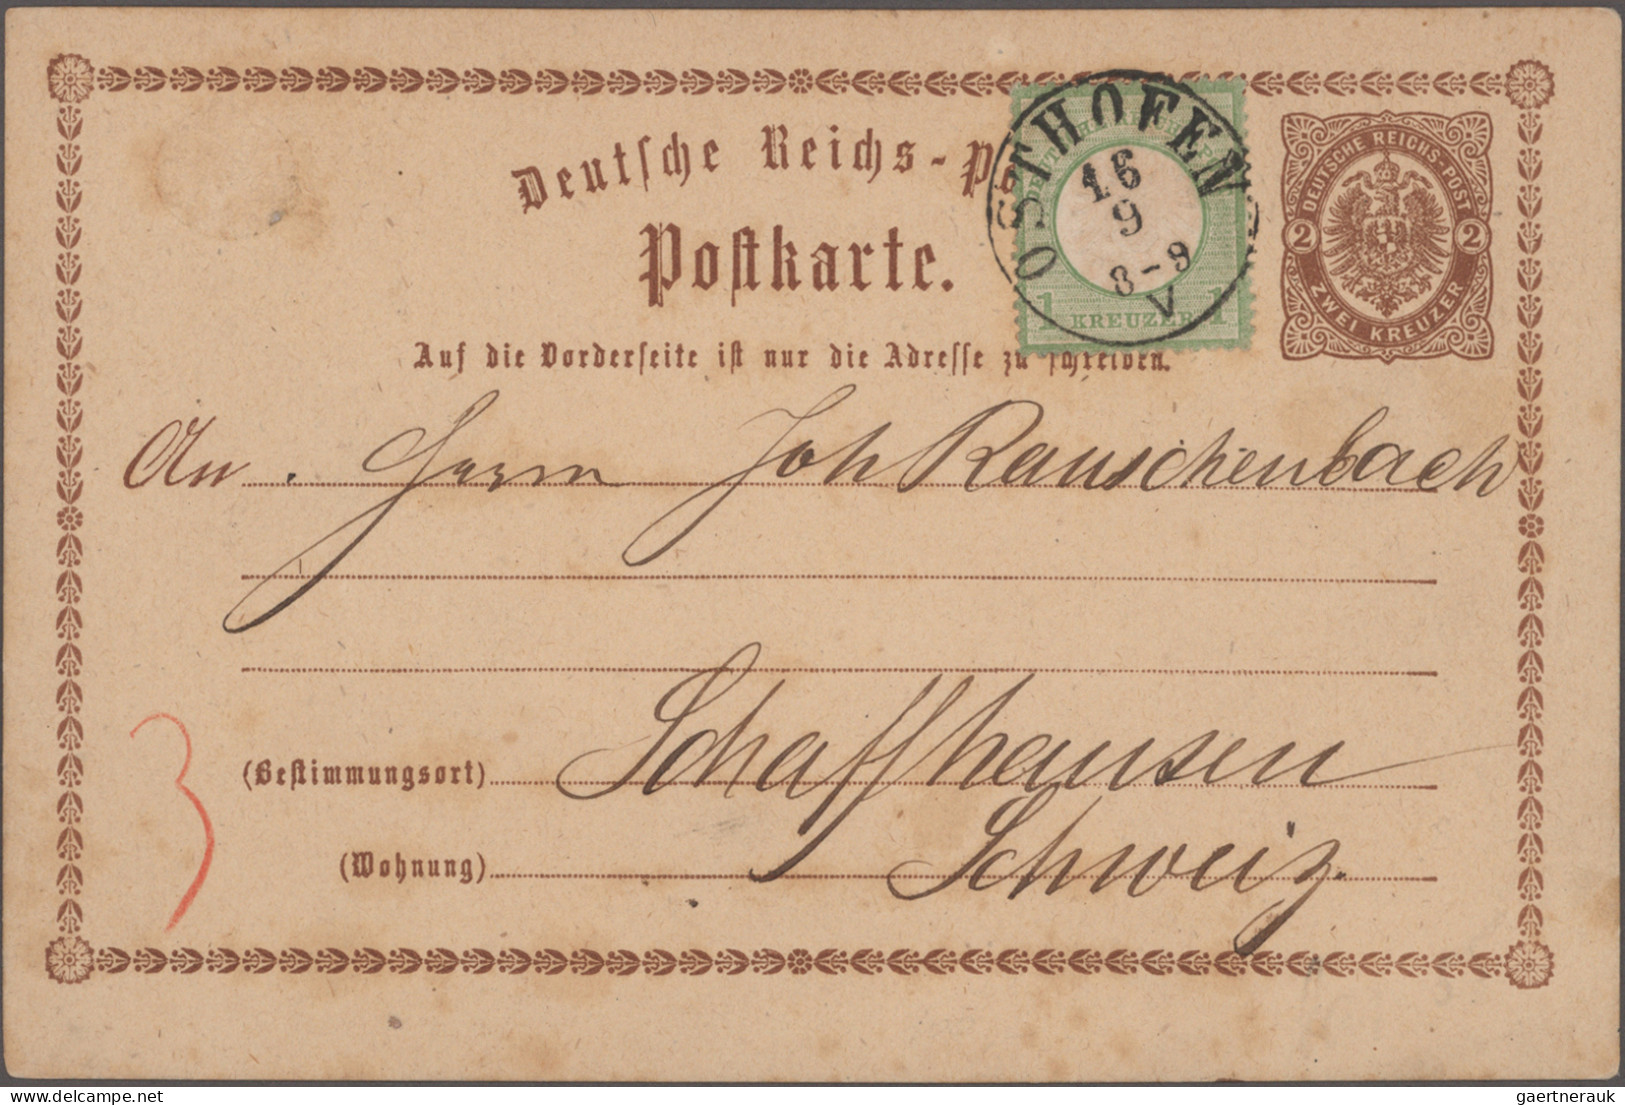 Deutsche Reichs-P
Postkarte.
OSTHOFEN
16
9
8-9
V
1 KREUZER 1
DEUTSCHE REICHS-POST
2 2
ZWEI KREUZER
Auf die Vorderseite ist nur die Adresse zu schreiben.
An. Herrn Joh Rauschenbach
3
(Bestimmungsort) Schaffhausen
(Wohnung) Schweiz.
delcampe.net
gaertnerauk